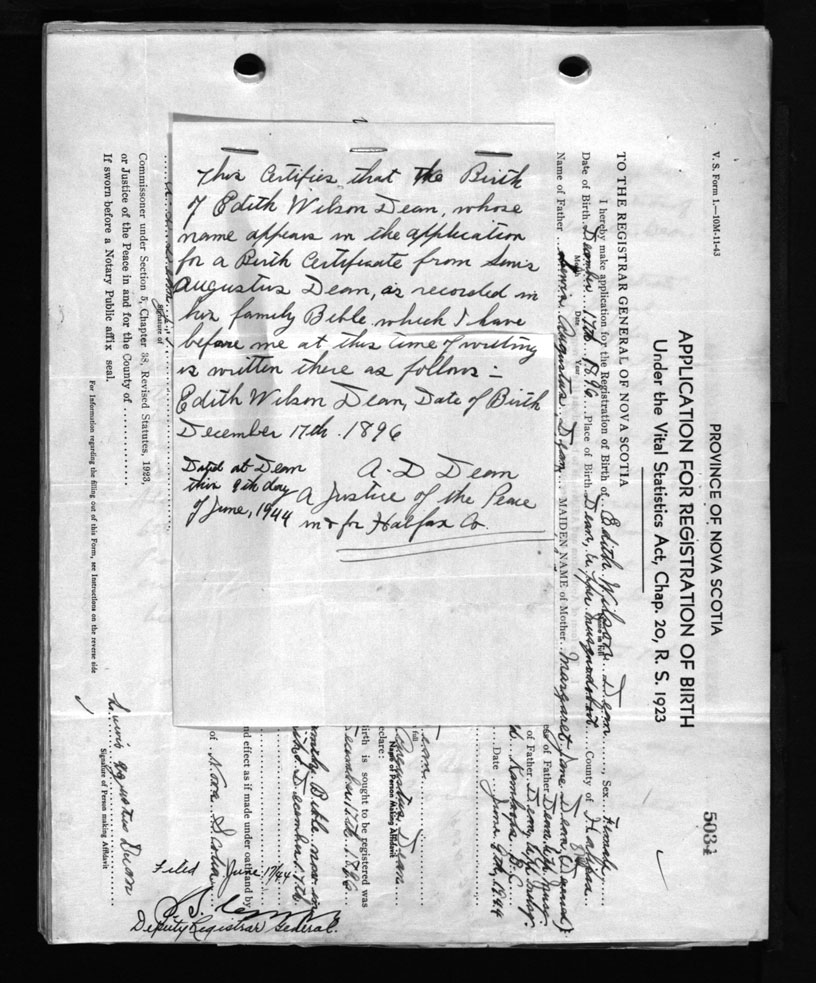 This Certifies that the Birth
of Edith Wilson Dean, whose
name appears in the application
for a Birth Certificate from Lewis
Augustus Dean, as recorded in
his family Bible, which I have
before me at this time of writing
is written there as follows:-
Edith Wilson Dean, Date of Birth
December 17th. 1896
Dated at Dean
this 9th day
of June, 1944
A. D Dean
A Justice of the Peace
in & for Halifax Co.
V. S. Form 1.—10M-11-43
PROVINCE OF NOVA SCOTIA
5034
APPLICATION FOR REGISTRATION OF BIRTH
Under the Vital Statistics Act, Chap. 20, R. S. 1923
TO THE REGISTRAR GENERAL OF NOVA SCOTIA
I hereby make application for the Registration of Birth of Edith Wilson Dean, Sex Female
Date of Birth December 17th 1896 Place of Birth Dean, Upper Musquodoboit County of Halifax
Month Date Year
Name of Father Lewis Augustus Dean MAIDEN NAME of Mother Margaret Jane Dean
of Father Dean
of Father Dean
Kamloops B.C.
Date June 9th, 1944
Dean
in full
Augustus Dean
Name of Person Making Affidavit
declare:
birth is sought to be registered was
December 17th 1896
family Bible now in
December 17th
and effect as if made under oath and by
of Nova Scotia
Signature of
Commissioner under Section 5, Chapter 38, Revised Statutes, 1923,
or Justice of the Peace in and for the County of
If sworn before a Notary Public affix seal.
Lewis Augustus Dean
Signature of Person making Affidavit
For Information regarding the filling out of this Form, see Instructions on the reverse side
Filed June 17/44
Deputy Registrar General.